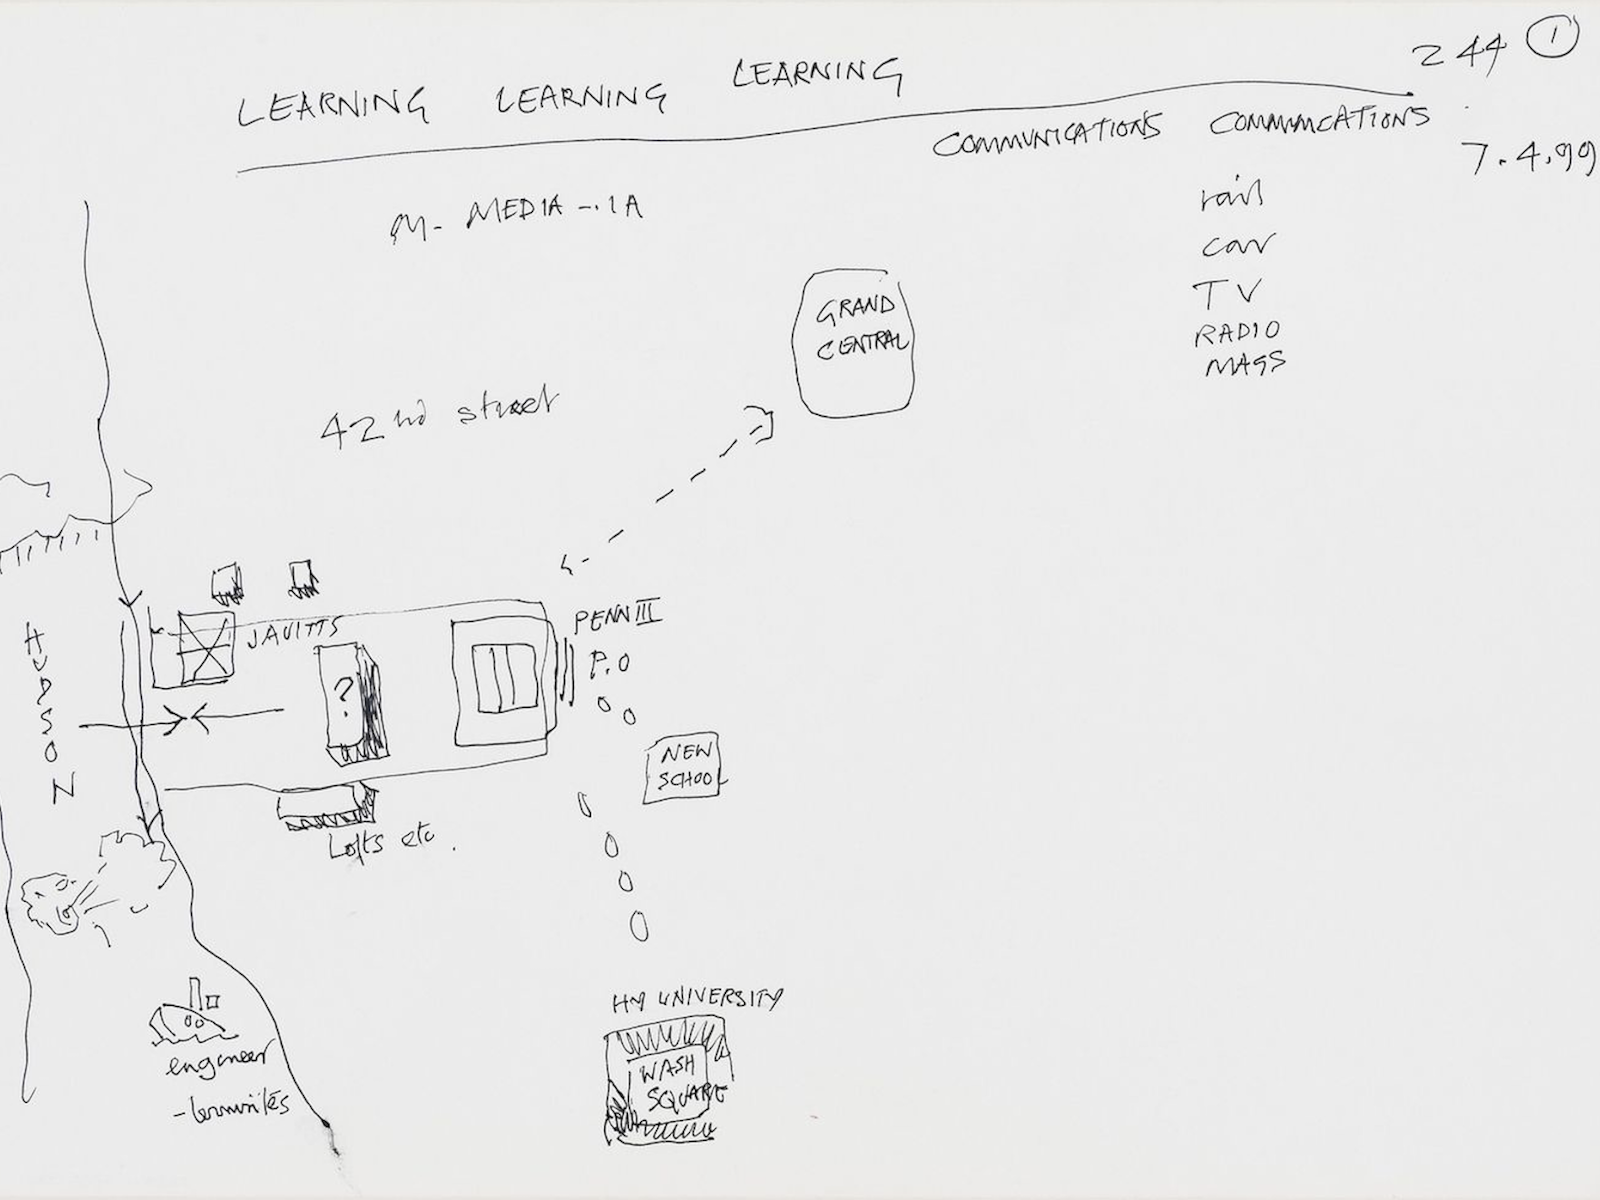 244 1
LEARNING LEARNING LEARNING
COMMUNICATIONS COMMMCATIONS
7.4.99
M- MEDIA -.1A
rail
car
TV
RADIO
MAGS
GRAND
CENTRAL
42nd street
HUDSON
JAVITTS
PENN III
P.O
?
NEW
SCHOOL
Lofts etc.
HY UNIVERSITY
WASH
SQUARE
engineer